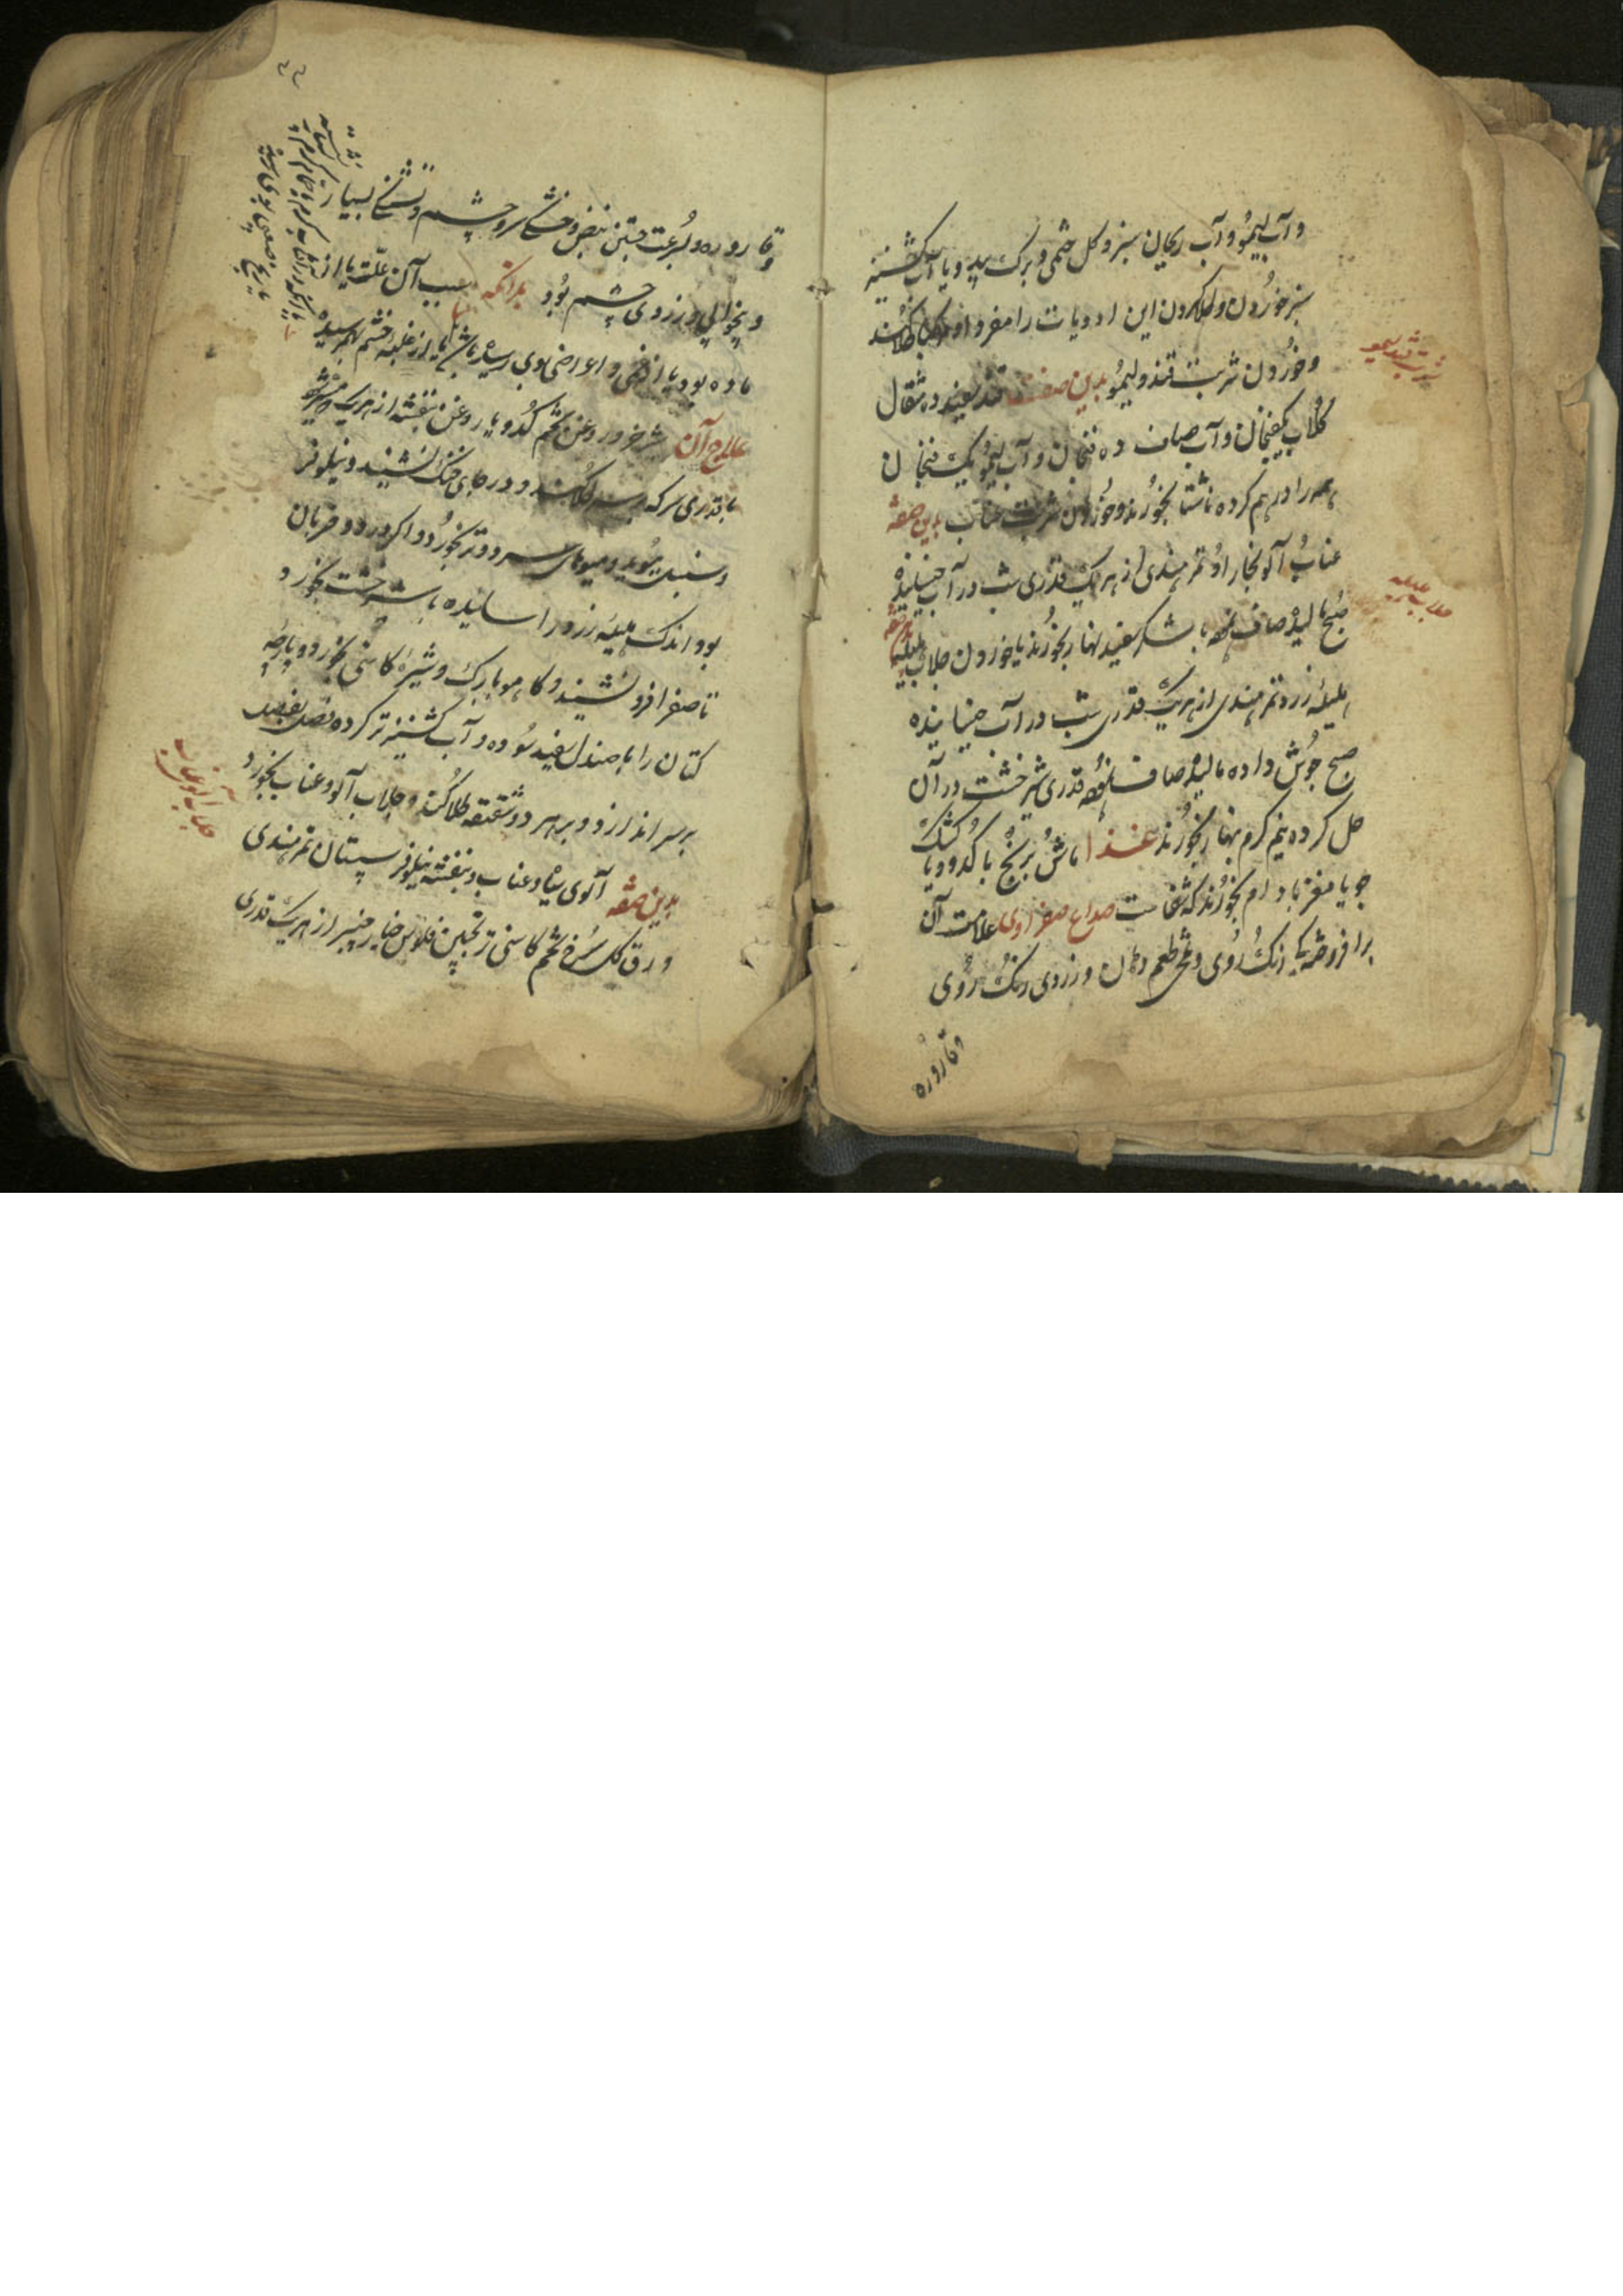 و آب لیمو و آب ریحان سبز و کل خطمی و برک بید و یا آب کشنیز
سبز خوردن و طلا کردن این ادویات را مفرد او مرکب طلا کنند
و خوردن شربت قند و لیمو بدین صفت قند سفید ده مثقال
کلاب یکفنجان و آب صاف ده فنجان و آب لیمو یک فنجان
همه را درهم کرده ناشتا بخورند و خوردن شربت عناب بدین صفة
عناب آلو بخارا و تمر هندی از هر یک قدری شب در آب خیسانیده
صبح مالیده صاف نموده با شکر سفید نهار بخورند یا خوردن جلاب هلیله
هلیله زرد و تمر هندی از هر یک قدری شب در آب خیسانیده
صبح جوش داده مالیده صاف نموده قدری شیرخشت در آن
حل کرده نیم کرم نهار بخورند غذا ماش برنج با کدو و یا کشک
جو یا مغز بادام بخورند که شفاست صداع صفراوی علامت آن
برافروختگی رنک روی و تلخی طعم دهان و زردی رنک روی
و قاروره
شربت قند لیمو
جلاب هلیله
و قاروره و سرعت جستن نبض و خشکی سر و چشم و تشنگی بسیار
و بیخوابی و زردی چشم بود بدانکه سبب آن علت یا از
ماده بود یا از غمی و اعراضی بوی رسیده باشد یا از غلبه خشم بهم رسیده
علاج آن شیر خر و روغن تخم کدو یا روغن بنفشه از هر یک
با قدری سرکه بر سر طلا کنند و در جای خنک نشیند و نیلوفر
و سنبل بیوید و میوهای سرد و تر بخورد و اکر درد و ضربان
بود اندک هلیله زرد را سائیده با شیرخشت بخورد
تا صفرا فرو نشیند و کاهو با برک و شیره کاسنی بخورد و پارچه
کتان را با صندل سفید سوده در آب کشنیز تر کرده
بر سر اندازد و بر هر دو شقیقه طلا کند و جلاب آلو و عناب بخورد
بدین صفة آلوی سیاه و عناب و بنفشه نیلوفر سپستان تمر هندی
ورق کل سرخ تخم کاسنی ترنجبین فلوس خیار چنبر از هر یک قدری
جلاب آلو عناب